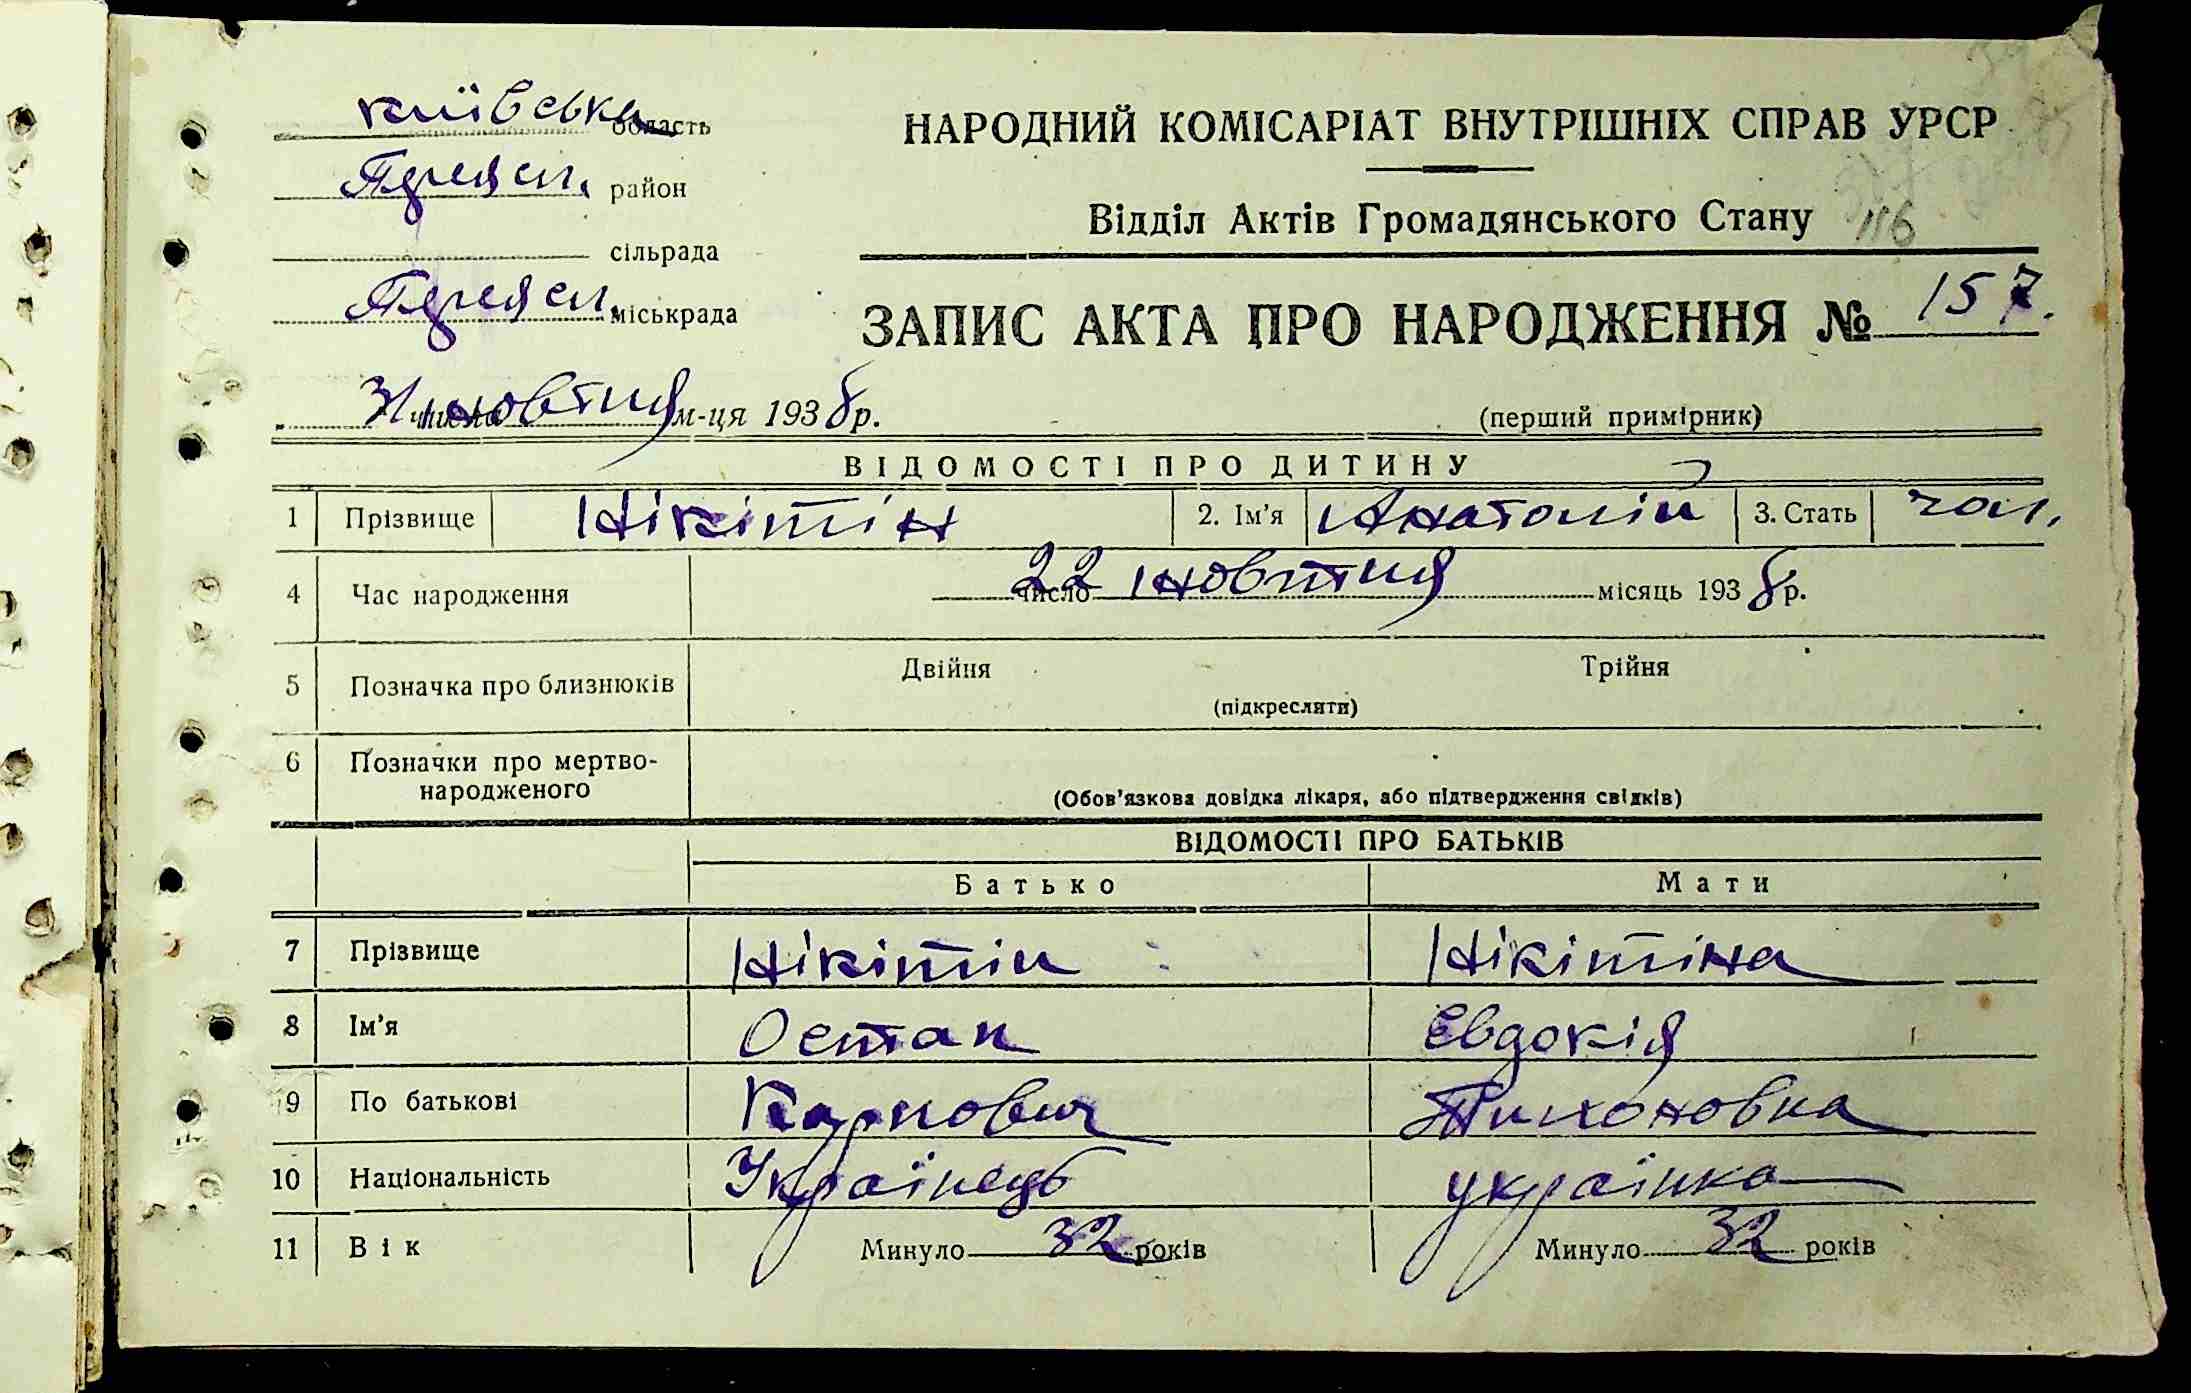 київська область
Переясл. район
сільрада
Переясл. міськрада
31 числа жовтня м-ця 1938 р.
НАРОДНИЙ КОМІСАРІАТ ВНУТРІШНІХ СПРАВ УРСР
Відділ Актів Громадянського Стану 116
ЗАПИС АКТА ПРО НАРОДЖЕННЯ № 157.
(перший примірник)
ВІДОМОСТІ ПРО ДИТИНУ
1 Прізвище Нікітін 2. Ім'я Анатолій 3. Стать чол.
4 Час народження 22 число жовтня місяць 1938 р.
5 Позначка про близнюків Двійня Трійня
(підкреслити)
6 Позначки про мертво-
народженого
(Обов'язкова довідка лікаря, або підтвердження свідків)
ВІДОМОСТІ ПРО БАТЬКІВ
Батько Мати
7 Прізвище Нікітін Нікітіна
8 Ім'я Остап Євдокія
9 По батькові Карпович Тихоновна
10 Національність Українець українка
11 Вік Минуло 32 років Минуло 32 років